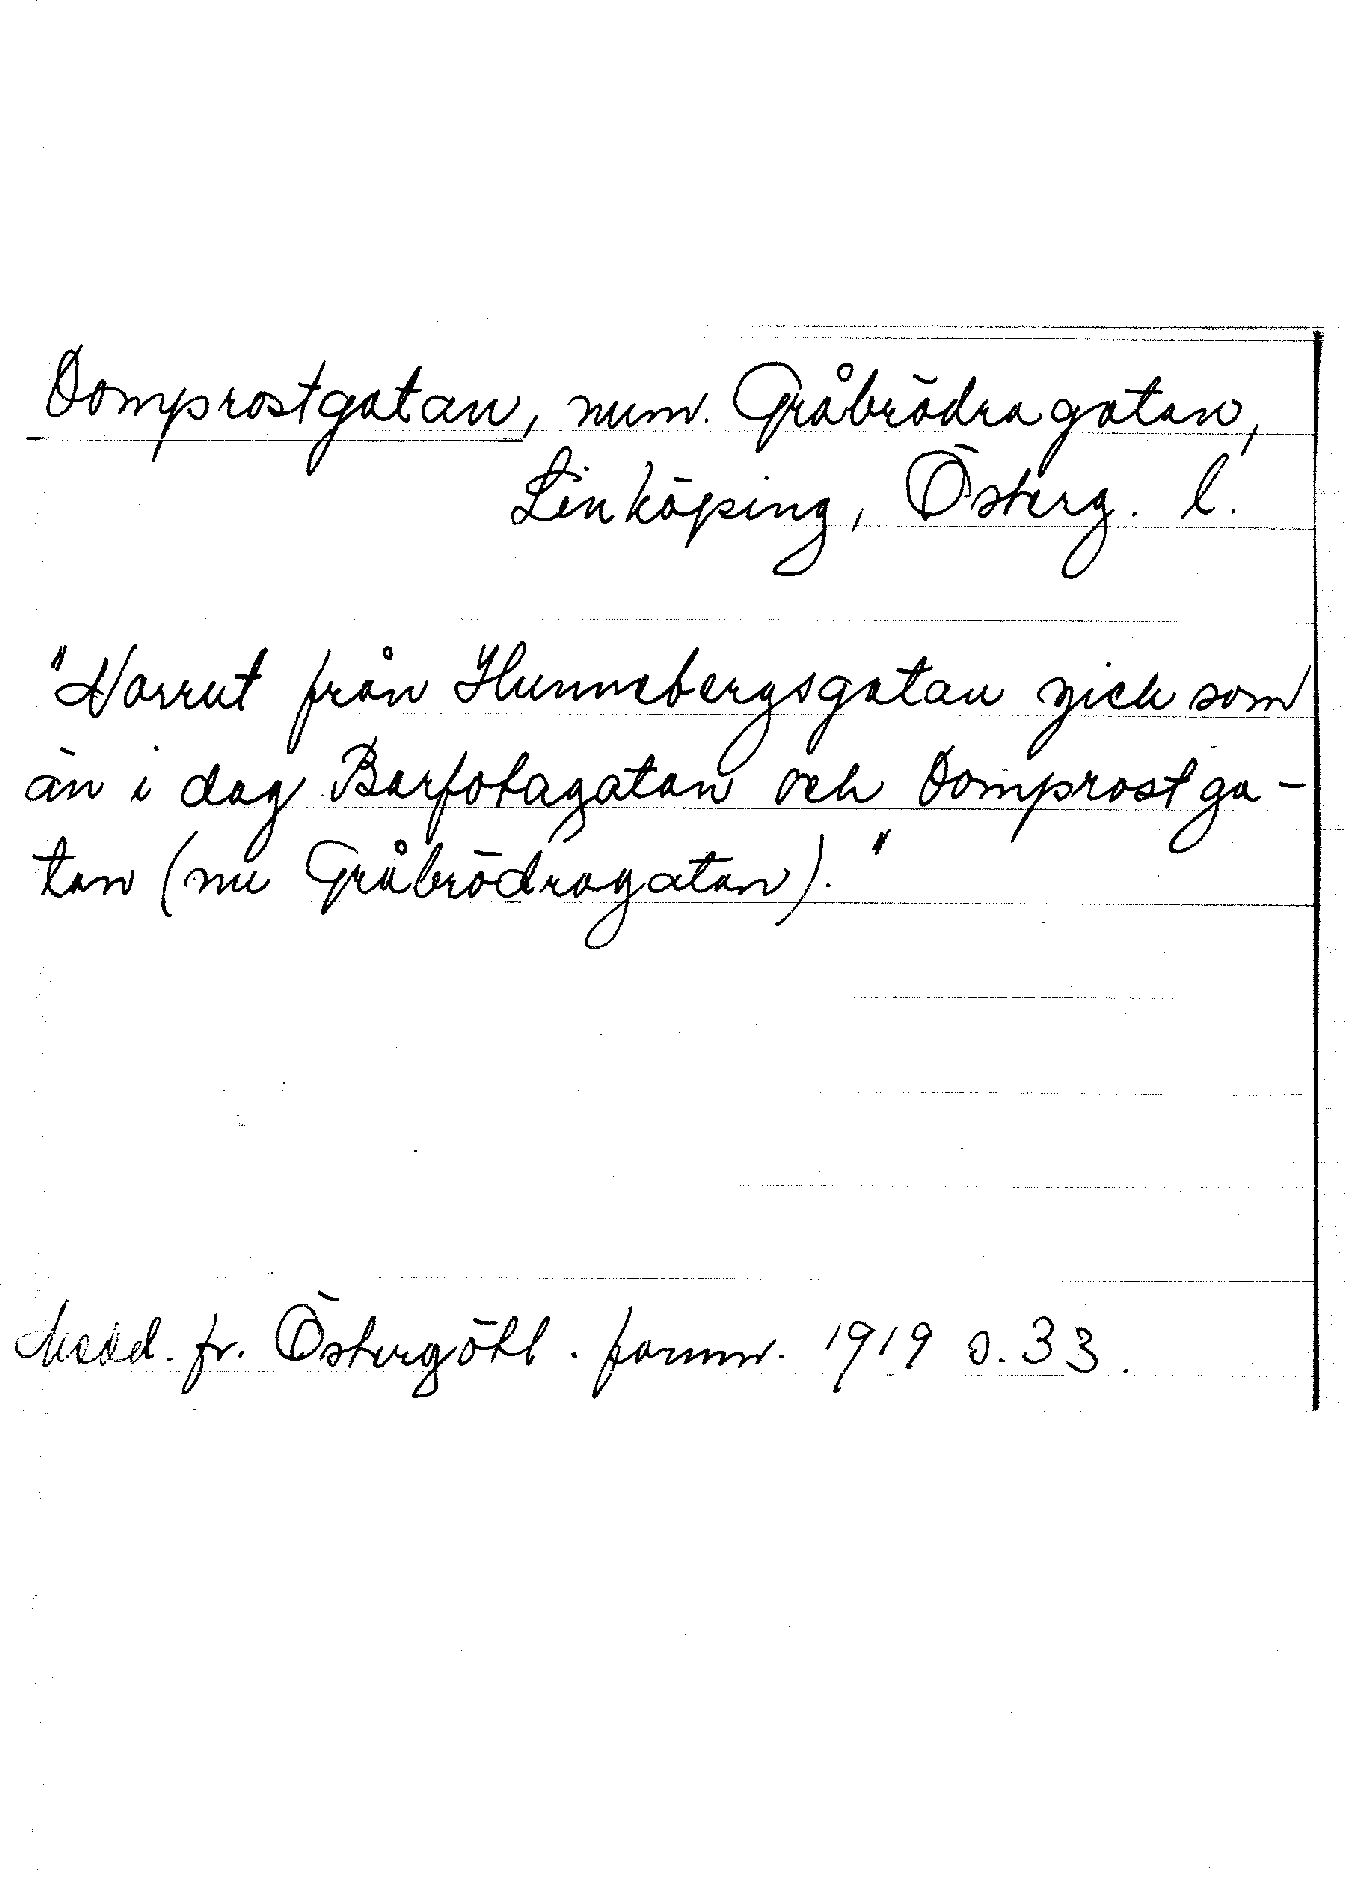 Domprostgatan, num. Gråbrödragatan,
Linköping, Österg. l.
"Norrut från Hunnebergsgatan gick som
än i dag Barfotagatan och Domprostga-
tan (nu Gråbrödragatan)."
Medd. fr. Östergötl. fornm. 1919 s. 33.